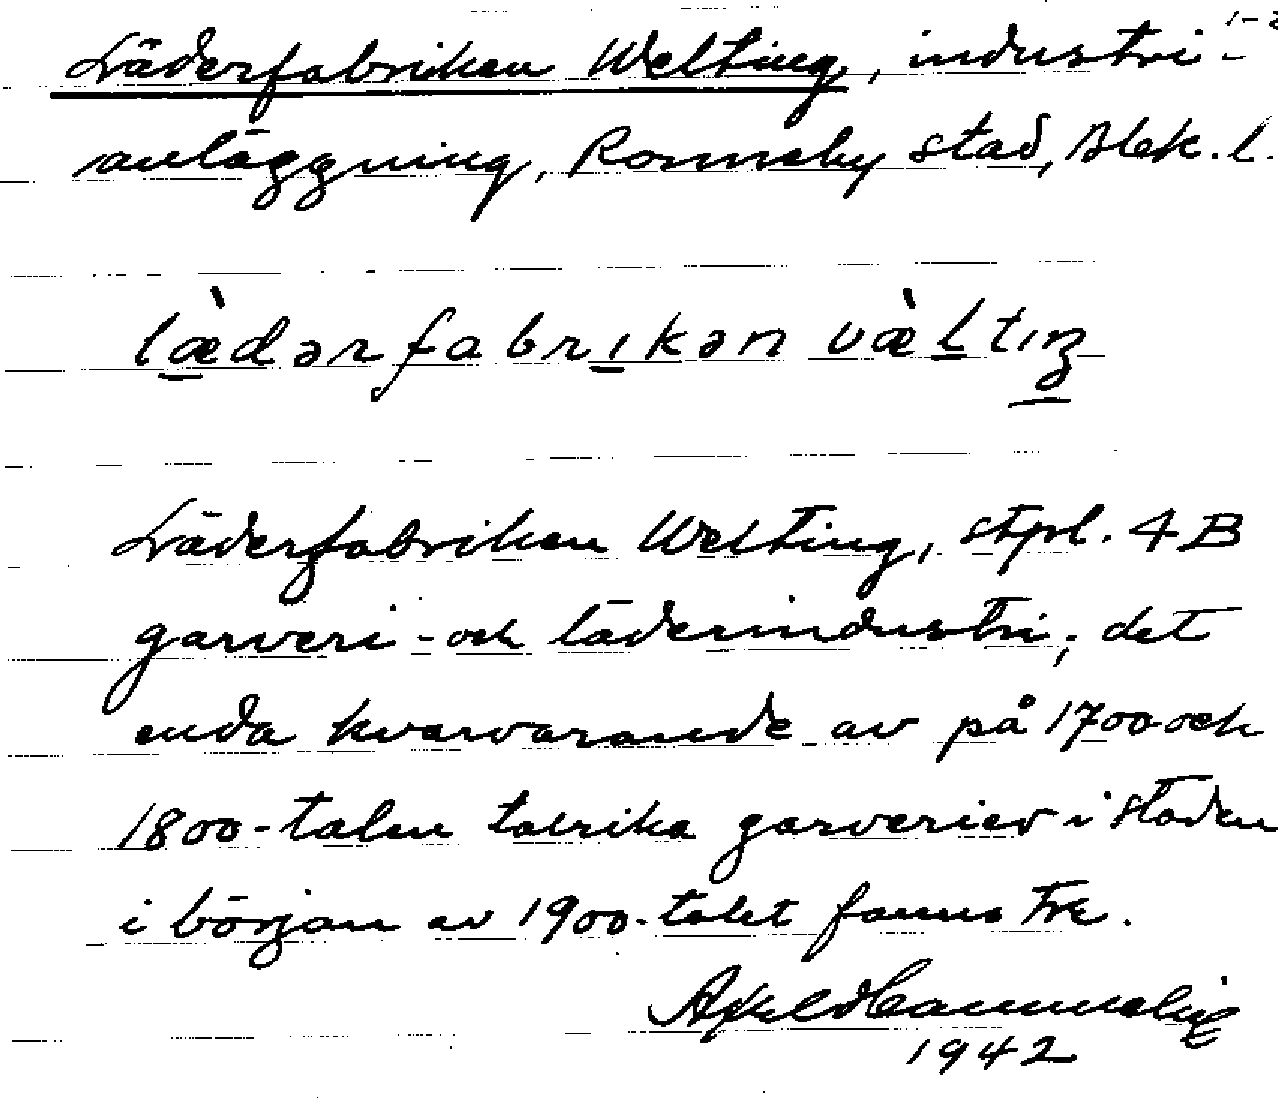 Läderfabriken Welting, industri-
anläggning, Ronneby stad, Blek. l.
læ̀dərfabrikən væ̀ltiŋ
Läderfabriken Welting, stpl. 4B
garveri- och läderindustri; det
enda kvarvarande av på 1700 och
1800-talen talrika garverier i staden
i början av 1900-talet fanns tre.
1942